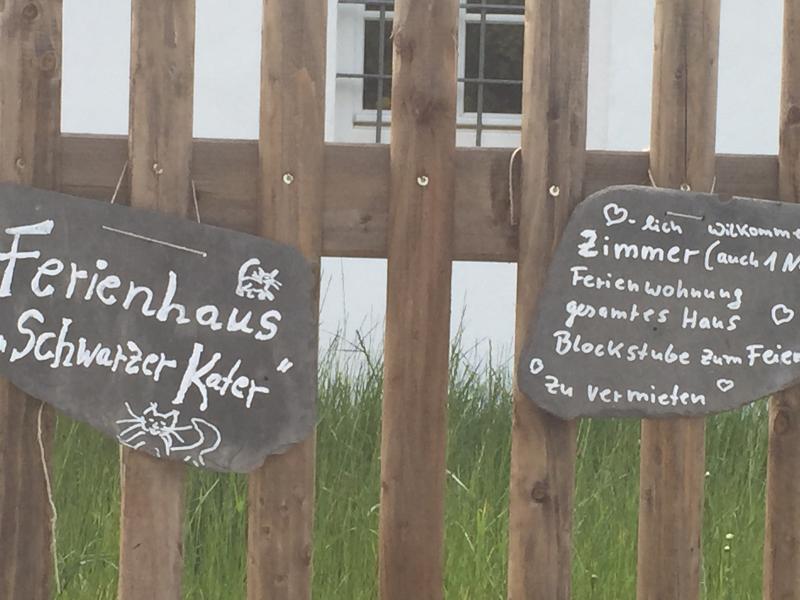 Ferienhaus
"Schwarzer Kater"
♡-lich willkomme
Zimmer (auch 1 N
Ferienwohnung
gesamtes Haus
Blockstube zum Feier
zu vermieten